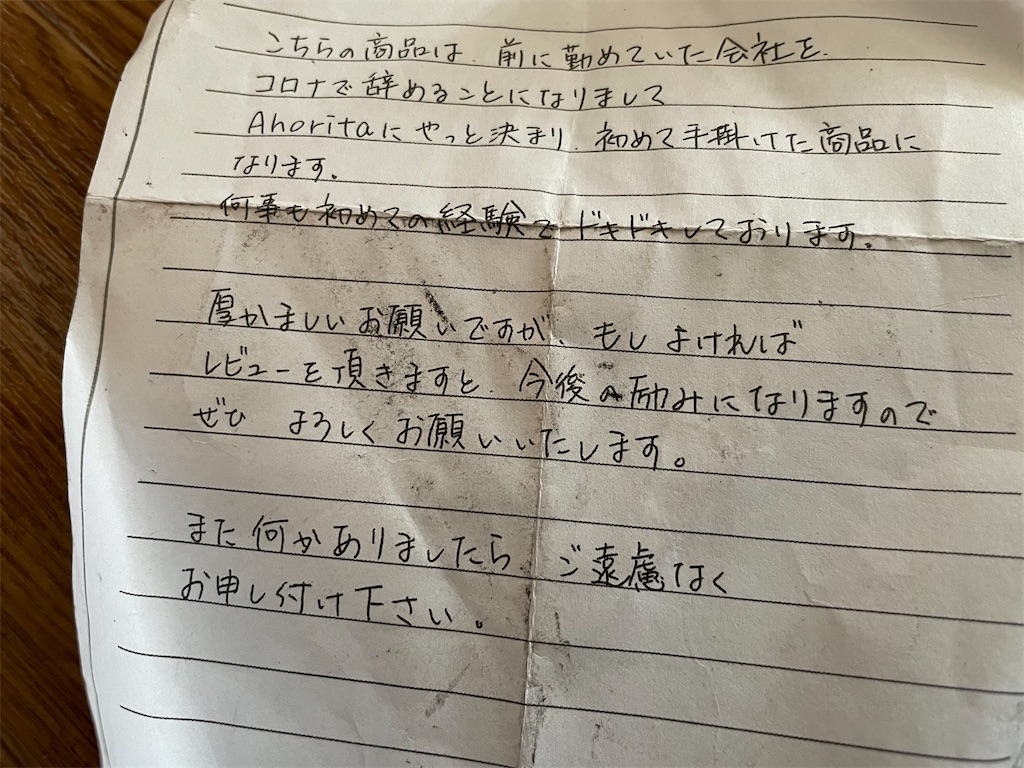 こちらの商品は、前に勤めていた会社を、
コロナで辞めることになりまして
Ahoritaにやっと決まり、初めて手掛けた商品に
なります。
何事も初めての経験でドキドキしております。
厚かましいお願いですが、もしよければ
レビューを頂きますと、今後の励みになりますので
ぜひ よろしくお願いいたします。
また何かありましたら、ご遠慮なく
お申し付け下さい。